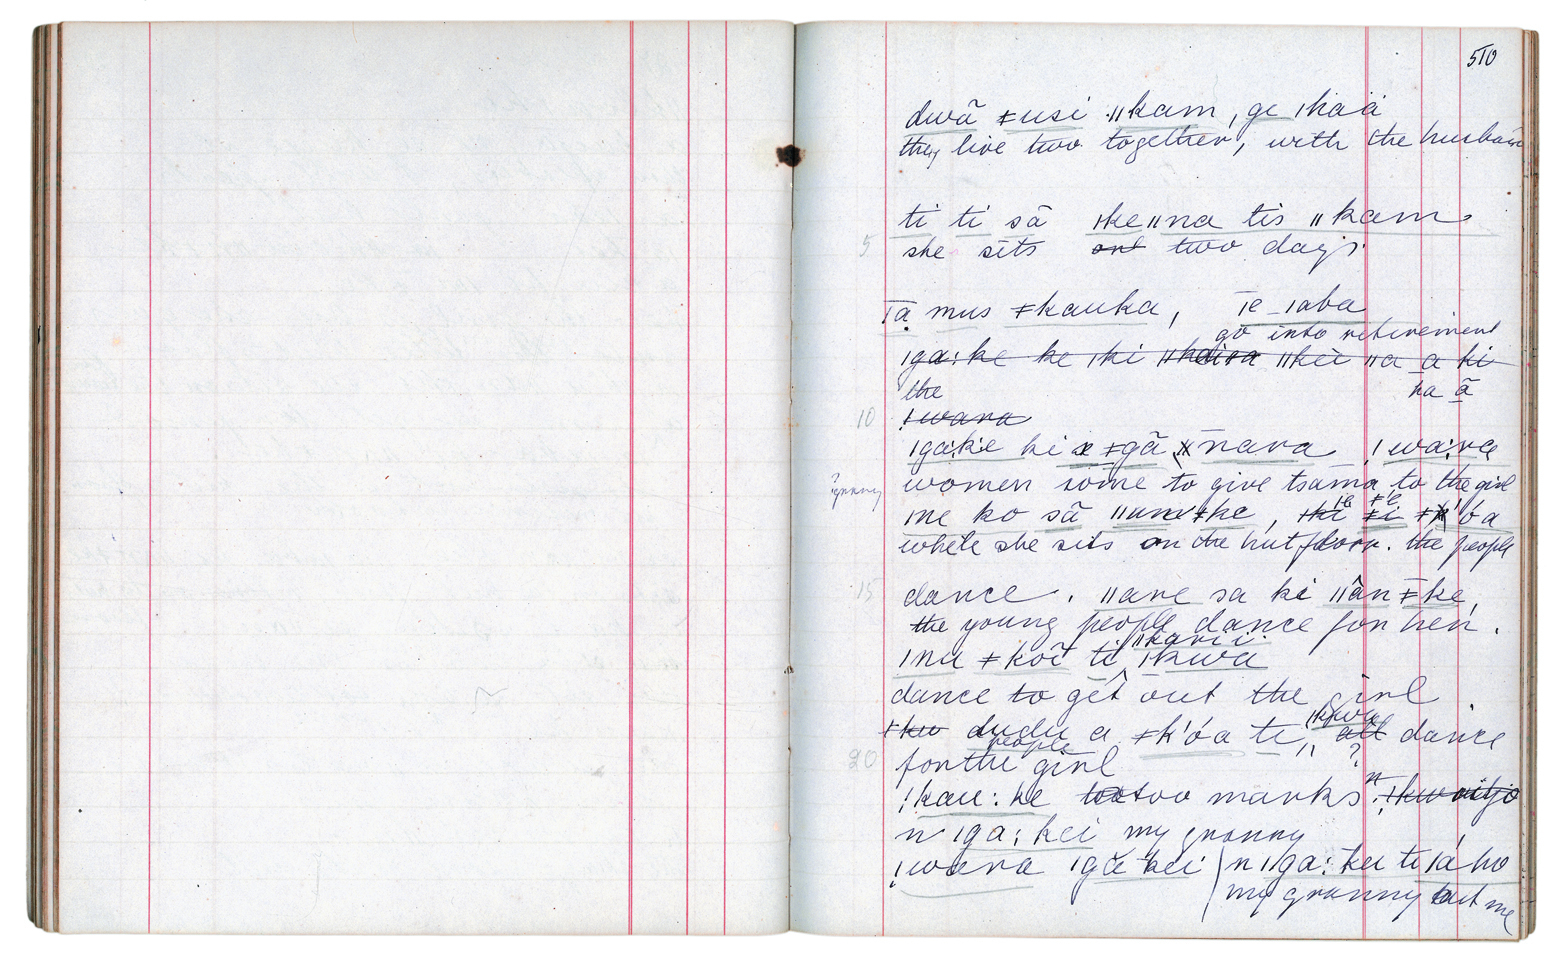 510
dwã ǂusi ǁkam, ge ǀhaä
they live two together, with the husband
ti ti sã ǀkeǁna tis ǁkam
5 she sits and two days
mus ǂkauka, ǀe_ǀaba
go into retirement
ǀga:ke ke ǀki ǁkaira ǁkei ǁa a ki
the ha ã
10 !wara
ǀga:ke ki ǂgã nara !wa:ra
? granny women some to give tsama to the girl
me ko sã ǁumǂke, ǂk'óa
where she sits on the hut floor. the people
15 dance. ǁare sa ki ǁân ǂke,
the young people dance for her.
ǁkarii
ǀnu ǂkoĩ ti ǀkwa
dance to get out the girl
dudu a ǂk'óa te, ǀkwa all dance
people ?
20 for the girl
!kau:ke tattoo marks
n ǀga:kei my granny
!wara ǀgã kei n ǀga:kei ti ǀá ho
my granny cut me